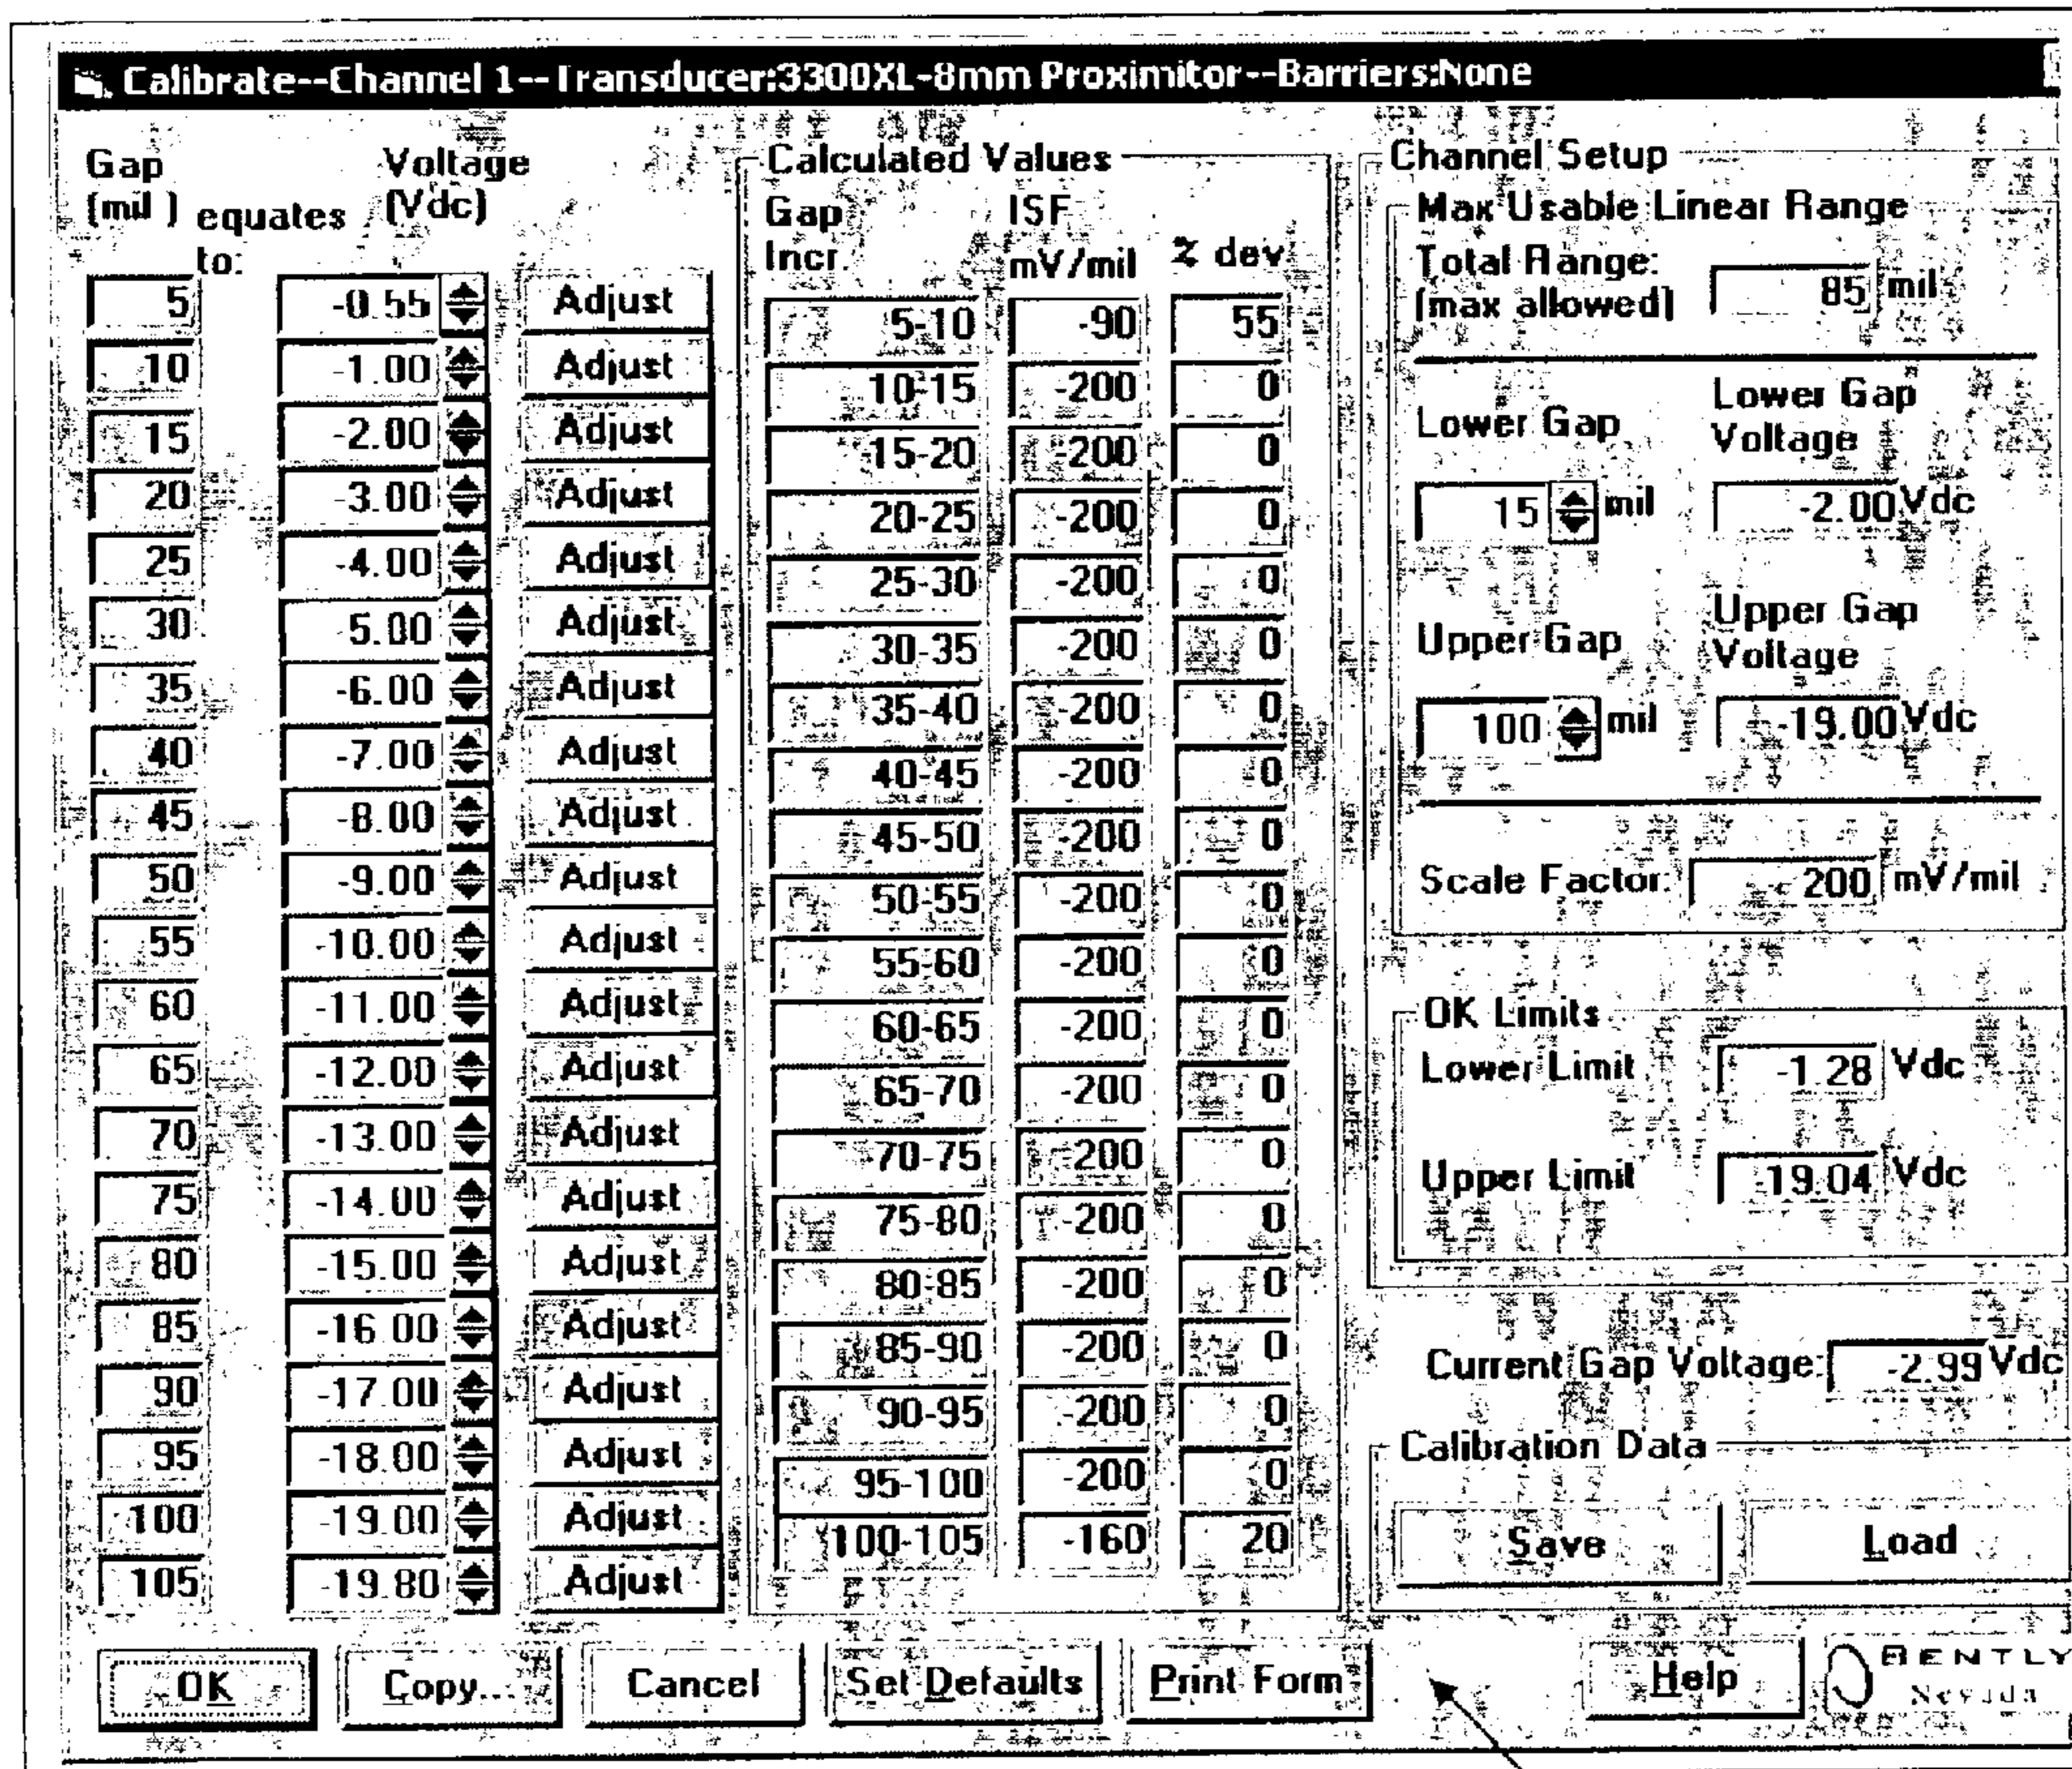 Calibrate--Channel 1--Transducer:3300XL-8mm Proximitor--Barriers:None
Gap
(mil ) equates
to:
Voltage
(Vdc)
5 -0.55 Adjust
10 -1.00 Adjust
15 -2.00 Adjust
20 -3.00 Adjust
25 -4.00 Adjust
30 5.00 Adjust
35 -6.00 Adjust
40 -7.00 Adjust
45 -8.00 Adjust
50 -9.00 Adjust
55 -10.00 Adjust
60 -11.00 Adjust
65 -12.00 Adjust
70 -13.00 Adjust
75 -14.00 Adjust
80 -15.00 Adjust
85 -16.00 Adjust
90 -17.00 Adjust
95 -18.00 Adjust
100 -19.00 Adjust
105 -19.80 Adjust
Calculated Values
Gap
Incr.
ISF
mV/mil
% dev
5-10 -90 55
10-15 -200 0
15-20 -200 0
20-25 -200 0
25-30 -200 0
30-35 -200 0
35-40 -200 0
40-45 -200 0
45-50 -200 0
50-55 -200 0
55-60 -200 0
60-65 -200 0
65-70 -200 0
70-75 -200 0
75-80 -200 0
80-85 -200 0
85-90 -200 0
90-95 -200 0
95-100 -200 0
100-105 -160 20
Channel Setup
Max Usable Linear Range
Total Range:
(max allowed) 85 mil
Lower Gap
15 mil
Lower Gap
Voltage
-2.00 Vdc
Upper Gap
100 mil
Upper Gap
Voltage
-19.00 Vdc
Scale Factor: 200 mV/mil
OK Limits
Lower Limit -1.28 Vdc
Upper Limit -19.04 Vdc
Current Gap Voltage: -2.99 Vdc
Calibration Data
Save Load
OK Copy... Cancel Set Defaults Print Form Help
BENTLY
Nevada